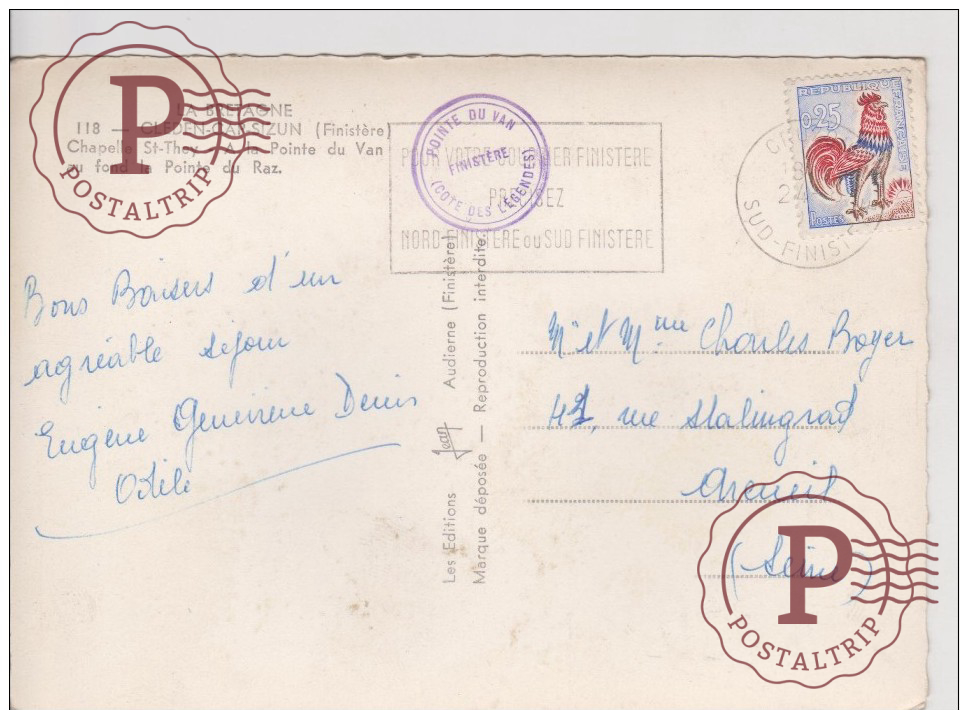 LA BRETAGNE
118 — CLEDEN-CAP-SIZUN (Finistère)
Chapelle St-They - A la Pointe du Van
au fond la Pointe du Raz.
P
POSTALTRIP
POINTE DU VAN
FINISTÈRE
(CÔTE DES LÉGENDES)
POUR VOTRE COURRIER FINISTERE
PRECISEZ
NORD FINISTERE ou SUD FINISTERE
SUD-FINIST
REPUBLIQUE FRANÇAISE
0,25
POSTES
Bons Baisers d'un
agréable séjour
Eugène Genevieve Denis
Odile
Les Editions Jean Audierne (Finistère)
Marque déposée — Reproduction interdite.
Mr et Mme Charles Boyer
rue Stalingrad
Arcueil
(Seine)
P
POSTALTRIP